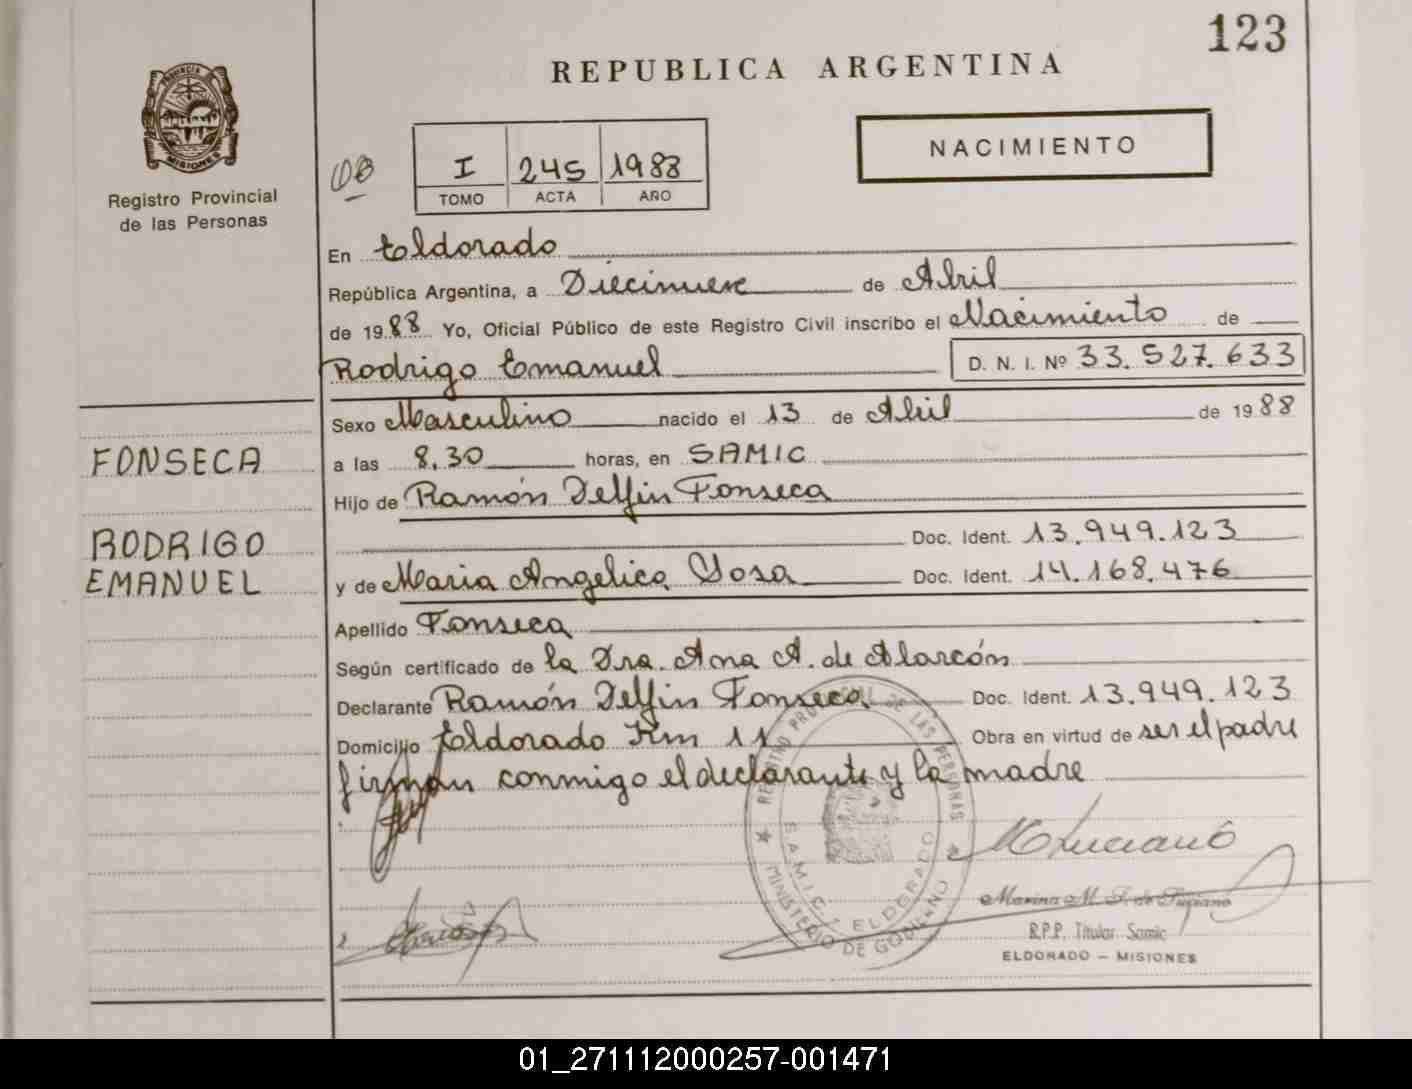 123
REPUBLICA ARGENTINA
PROVINCIA MISIONES
Registro Provincial
de las Personas
NACIMIENTO
I 245 1988
TOMO ACTA AÑO
En Eldorado
República Argentina, a Diecinueve de Abril
de 1988 Yo, Oficial Público de este Registro Civil inscribo el Nacimiento de
Rodrigo Emanuel D. N. I. Nº 33.527.633
Sexo Masculino nacido el 13 de Abril de 1988
FONSECA
a las 8,30 horas, en SAMIC
Hijo de Ramón Delfin Fonseca
RODRIGO
EMANUEL
Doc. Ident. 13.949.123
y de Maria Angelica Sosa Doc. Ident. 14.168.476
Apellido Fonseca
Según certificado de la Dra. Ana A. de Alarcón
Declarante Ramón Delfin Fonseca Doc. Ident. 13.949.123
Domicilio Eldorado Km 11 Obra en virtud de ser el padre
firman conmigo el declarante y la madre
REGISTRO PROVINCIAL DE LAS PERSONAS
S.A.M.I.C. ELDORADO
MINISTERIO DE GOBIERNO
Marina M. de
R.P.P. Titular Samic
ELDORADO – MISIONES
01_271112000257-001471